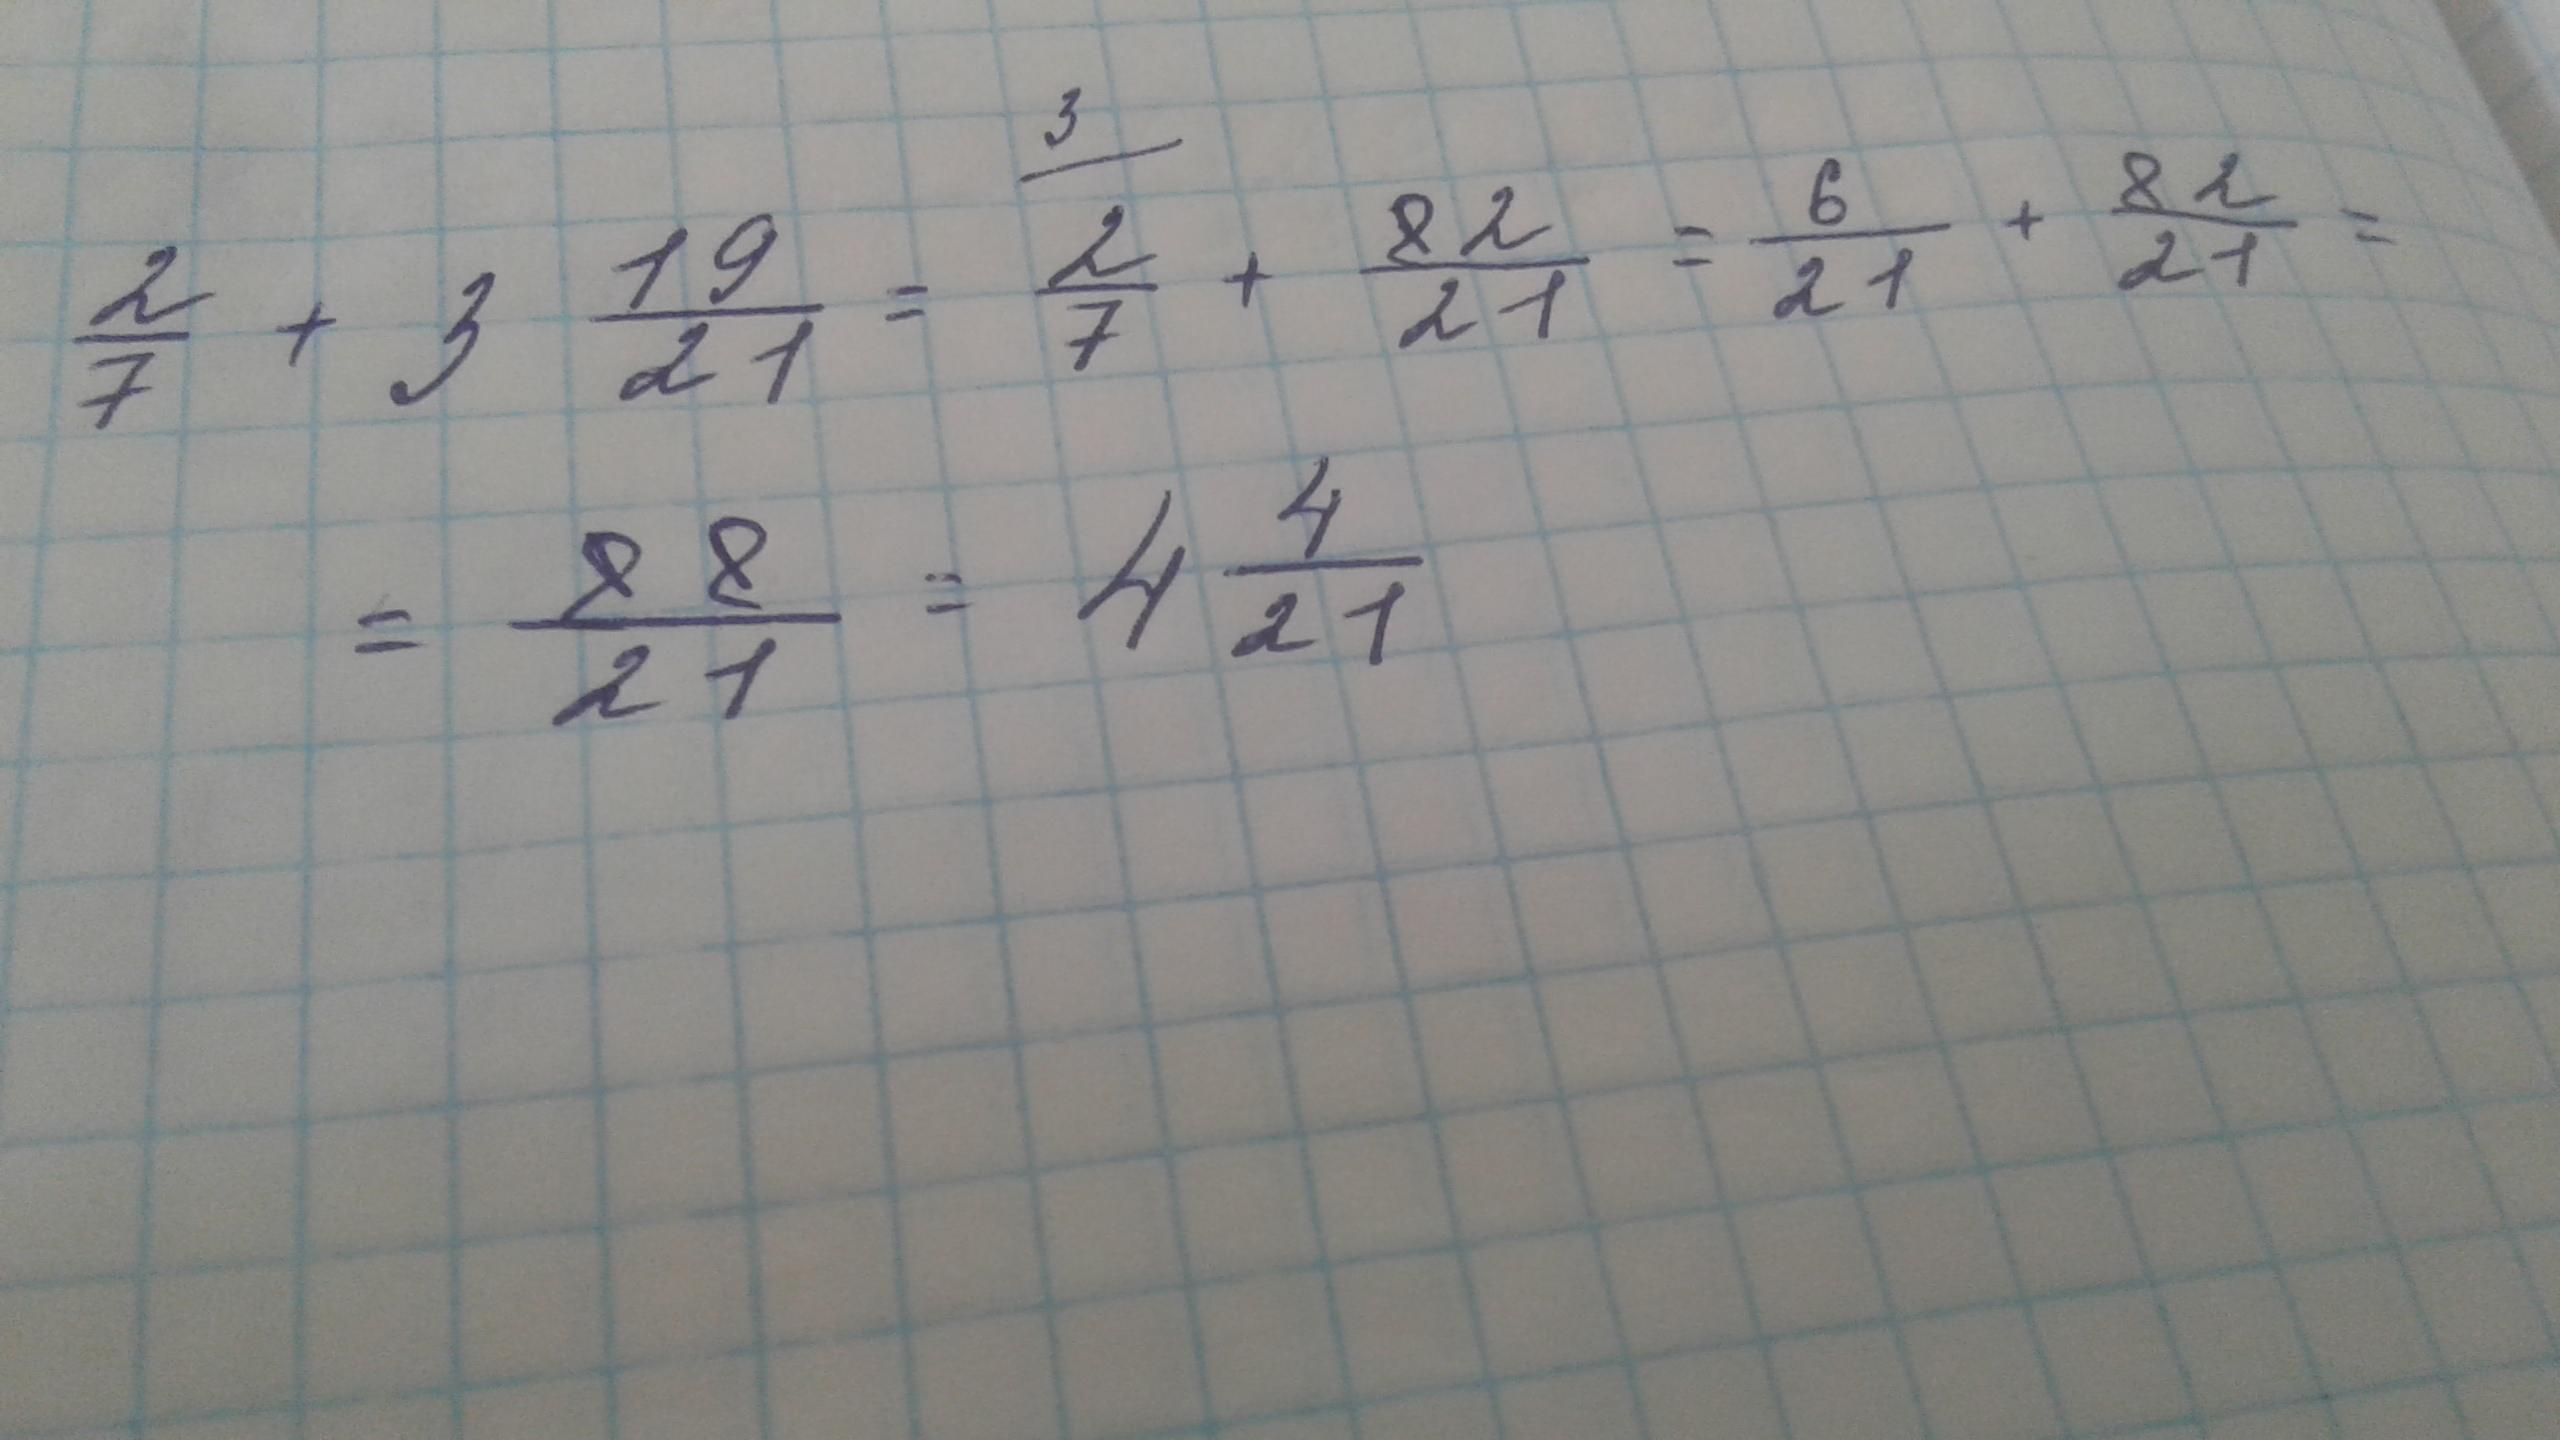 2/7 + 3 19/21 = 3/ 2/7 + 82/21 = 6/21 + 82/21 =
= 88/21 = 4 4/21